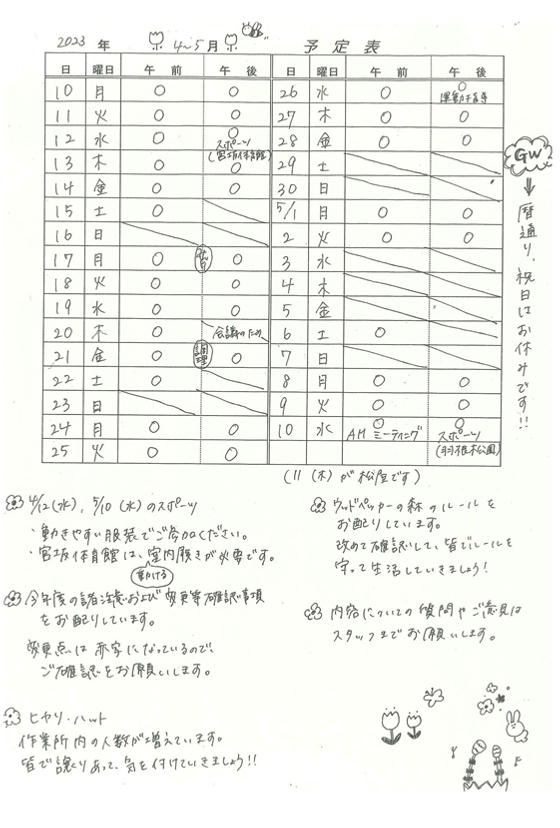 2023 年 4〜5 月 予 定 表
日 曜日 午 前 午 後
10 月 ○ ○
11 火 ○ ○
12 水 ○ ○ スポーツ
(宮坂体育館)
13 木 ○ ○
14 金 ○ ○
15 土 ○
16 日
17 月 ○ ○
18 火 ○ ○
19 水 ○ ○
20 木 ○ 会議のため
21 金 ○ 調理 ○
22 土 ○
23 日
24 月 ○ ○
25 火 ○ ○
日 曜日 午 前 午 後
26 水 ○ ○
27 木 ○ ○
28 金 ○ ○
29 土
30 日
5/1 月 ○ ○
2 火 ○ ○
3 水
4 木
5 金
6 土 ○
7 日
8 月 ○ ○
9 火 ○ ○
10 水 ○ AM ミーティング ○ スポーツ
(羽根木公園)
(11(木)が松屋です)
GW
↓
暦通り、祝日はお休みです!!
4/12(水), 5/10(水)のスポーツ
・動きやすい服装でご参加ください。
・宮坂体育館は、室内履きが必要です。
動ける
今年度の諸注意および変更等確認事項
をお配りしています。
変更点は赤字になっているので、
ご確認をお願いします。
ヒヤリ・ハット
作業所内の人数が増えています。
皆で譲りあって、気を付けていきましょう!!
ウッドペッカーの森のルールを
お配りしています。
改めて確認して、皆でルールを
守って生活していきましょう!
内容についての質問やご意見は
スタッフまでお願いします。